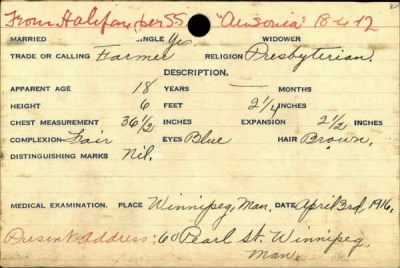 From Halifax per SS "Ausonia" 18-4-12
MARRIED SINGLE Yes WIDOWER
TRADE OR CALLING Farmer RELIGION Presbyterian.
DESCRIPTION.
APPARENT AGE 18 YEARS — MONTHS
HEIGHT 6 FEET 2 1/4 INCHES
CHEST MEASUREMENT 36 1/2 INCHES EXPANSION 2 1/2 INCHES
COMPLEXION Fair EYES Blue HAIR Brown.
DISTINGUISHING MARKS Nil.
MEDICAL EXAMINATION. PLACE Winnipeg, Man. DATE April 3rd, 1916.
Present Address: 60 Pearl St. Winnipeg,
Man.